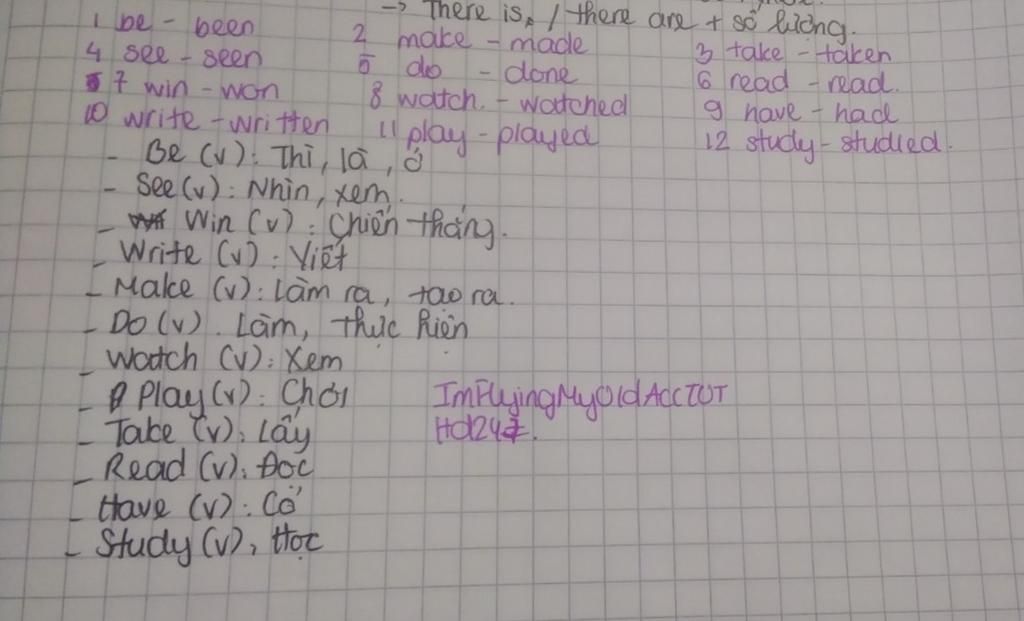 → There is / there are + số lượng.
1 be - been 2 make - made 3 take - taken
4 see - seen 5 do - done 6 read - read.
7 win - won 8 watch - watched 9 have - had
10 write - written 11 play - played 12 study - studied.
- Be (v): Thì, là, ở
- See (v): Nhìn, xem.
- Win (v): Chiến thắng.
- Write (v): Viết
- Make (v): Làm ra, tạo ra.
- Do (v). Làm, thực hiện
- Watch (v): Xem
- Play (v): Chơi ImFlyingMyOldAccTOT
- Take (v): Lấy Hd247.
- Read (v): Đọc
- Have (v): Có
- Study (v), Học